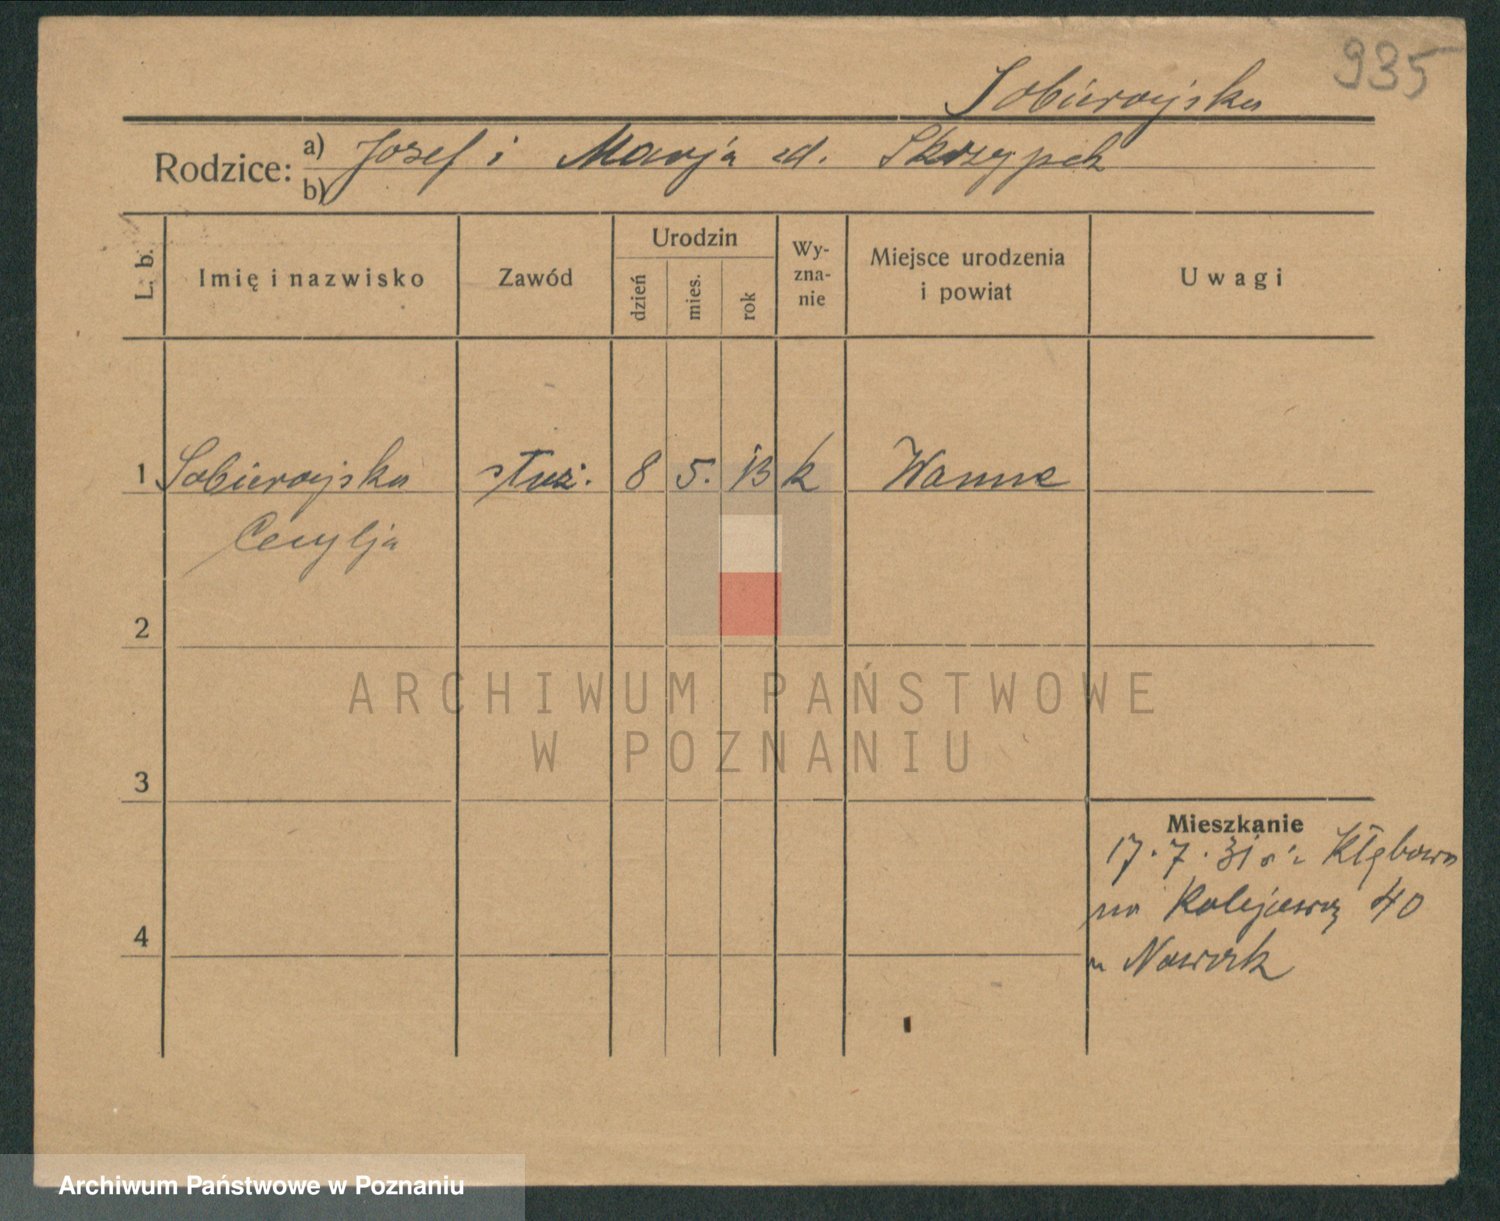 935
Sobierajska
Rodzice: a) Josef i Marja zd. Skrzypek
b)
L. b. Imię i nazwisko Zawód Urodzin dzień mies. rok Wyznanie Miejsce urodzenia i powiat Uwagi
1 Sobierajska służ. 8 5. 13 k Wanne
Cecylja
2
3
4
Mieszkanie
17.7.31 Kłębowo
na Kolejową 40
u Nowak
ARCHIWUM PAŃSTWOWE
W POZNANIU
Archiwum Państwowe w Poznaniu